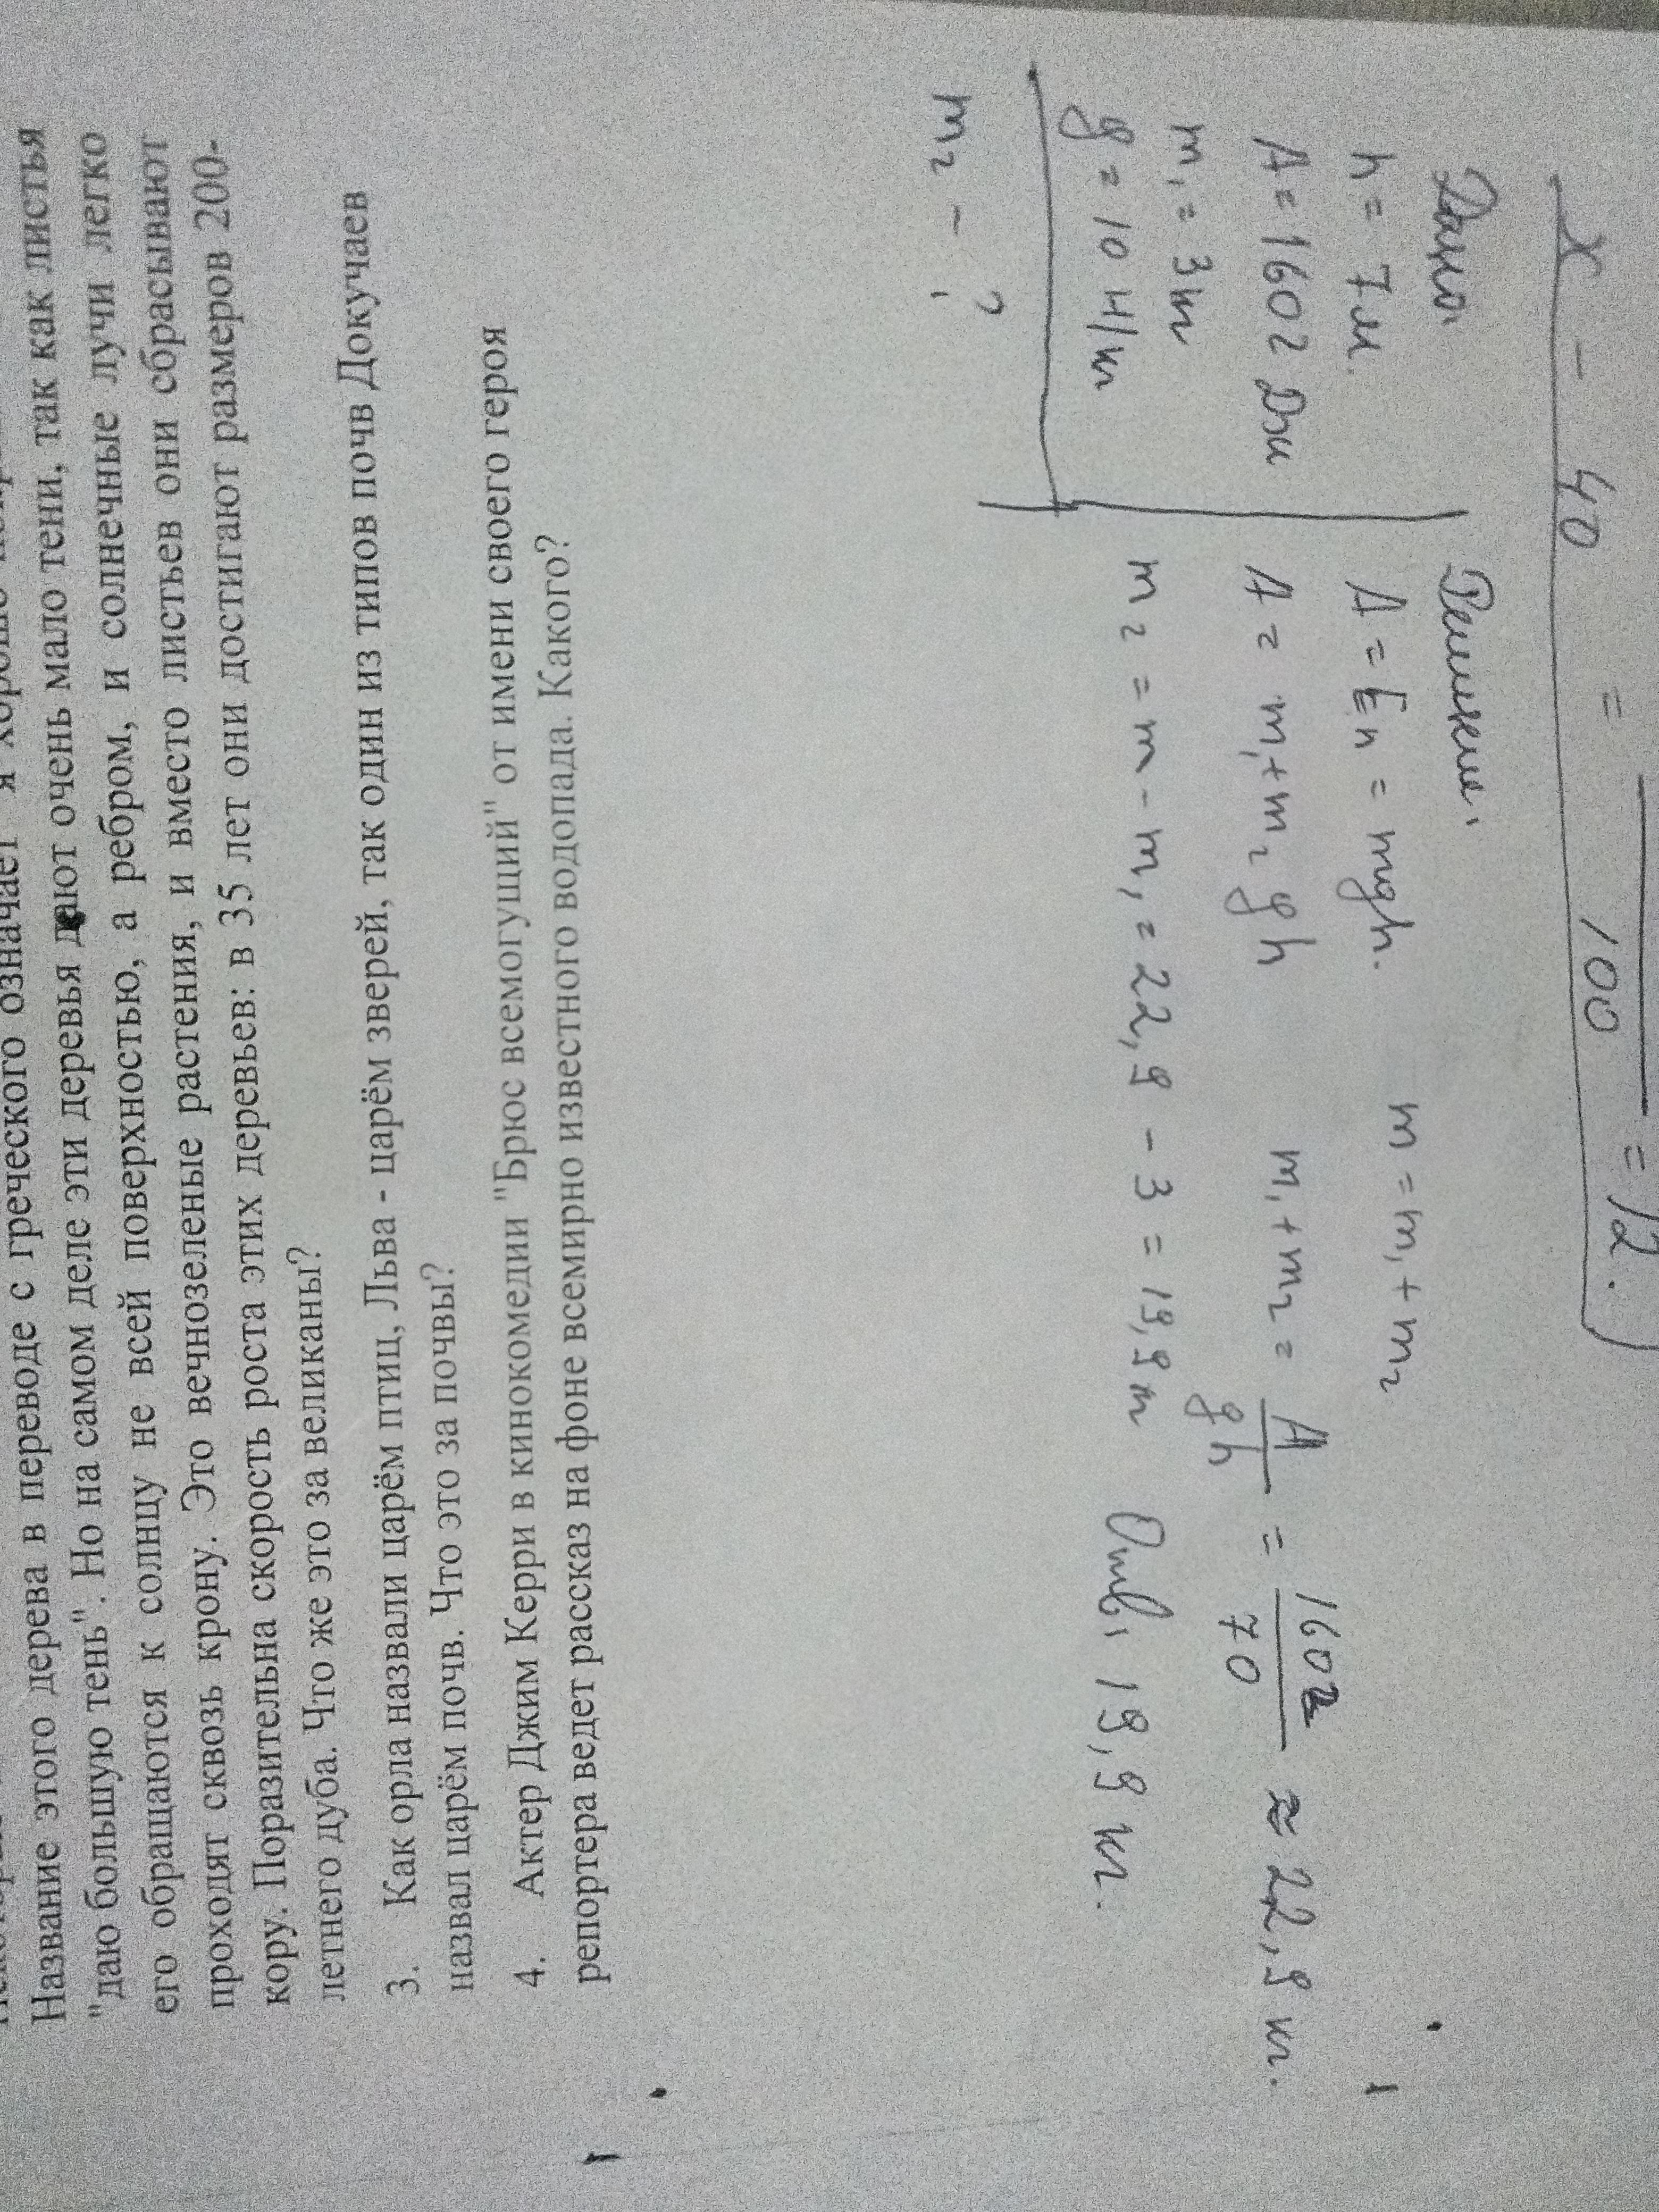 Название этого дерева в переводе с греческого означает "я хорошо
"даю большую тень". Но на самом деле эти деревья дают очень мало тени, так как листья
его обращаются к солнцу не всей поверхностью, а ребром, и солнечные лучи легко
проходят сквозь крону. Это вечнозеленые растения, и вместо листьев они сбрасывают
кору. Поразительна скорость роста этих деревьев: в 35 лет они достигают размеров 200-
летнего дуба. Что же это за великаны?
3. Как орла назвали царём птиц, Льва - царём зверей, так один из типов почв Докучаев
назвал царём почв. Что это за почвы?
4. Актер Джим Керри в кинокомедии "Брюс всемогущий" от имени своего героя
репортера ведет рассказ на фоне всемирно известного водопада. Какого?
x - 40 = 100 = 12.
Дано:
h = 7м.
A = 1602 Дж
m₁ = 3кг
g = 10 Н/кг
m₂ - ?
Решение:
A = Eп = mgh. m = m₁ + m₂
A = m₁+m₂ gh m₁ + m₂ = A/gh = 1602/70 ≈ 22,9 кг.
m₂ = m - m₁ = 22,9 - 3 = 19,9 кг Отв: 19,9 кг.